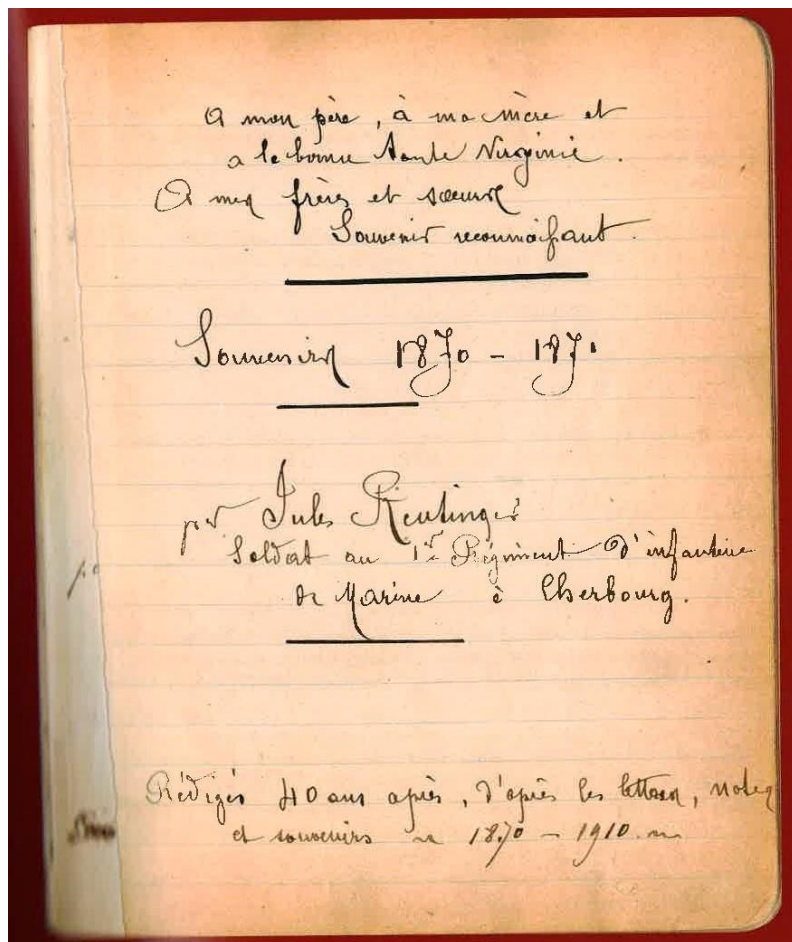 A mon père, à ma mère et
a la bonne tante Virginie.
A mes frères et sœurs
Souvenir reconnaissant.
Souvenirs 1870 - 1871
par Jules Reutinger
Soldat au 1er Régiment d'infanterie
de Marine à Cherbourg.
Rédigés 40 ans après, d'après les lettres, notes
et souvenirs 1870 - 1910